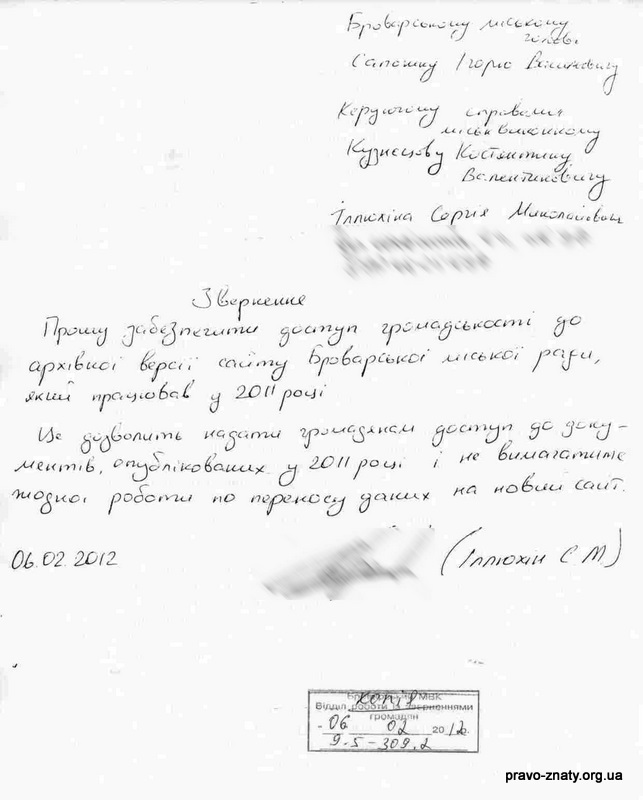 Броварському міському
голові
Сапожку Ігорю Васильовичу
Керуючому справами
міськвиконкому
Кузнєцову Костянтину
Валентиновичу
Іллюхіна Сергія Миколайовича
Звернення
Прошу забезпечити доступ громадськості до
архівної версії сайту Броварської міської ради,
який працював у 2011 році
Це дозволить надати громадянам доступ до доку-
ментів, опублікованих у 2011 році і не вимагатиме
жодної роботи по переносу даних на новий сайт.
06.02.2012
(Іллюхін С М)
Броварський МВК
копія
Відділ роботи із зверненнями
громадян
06 02 2012
9.5-309.2
pravo-znaty.org.ua